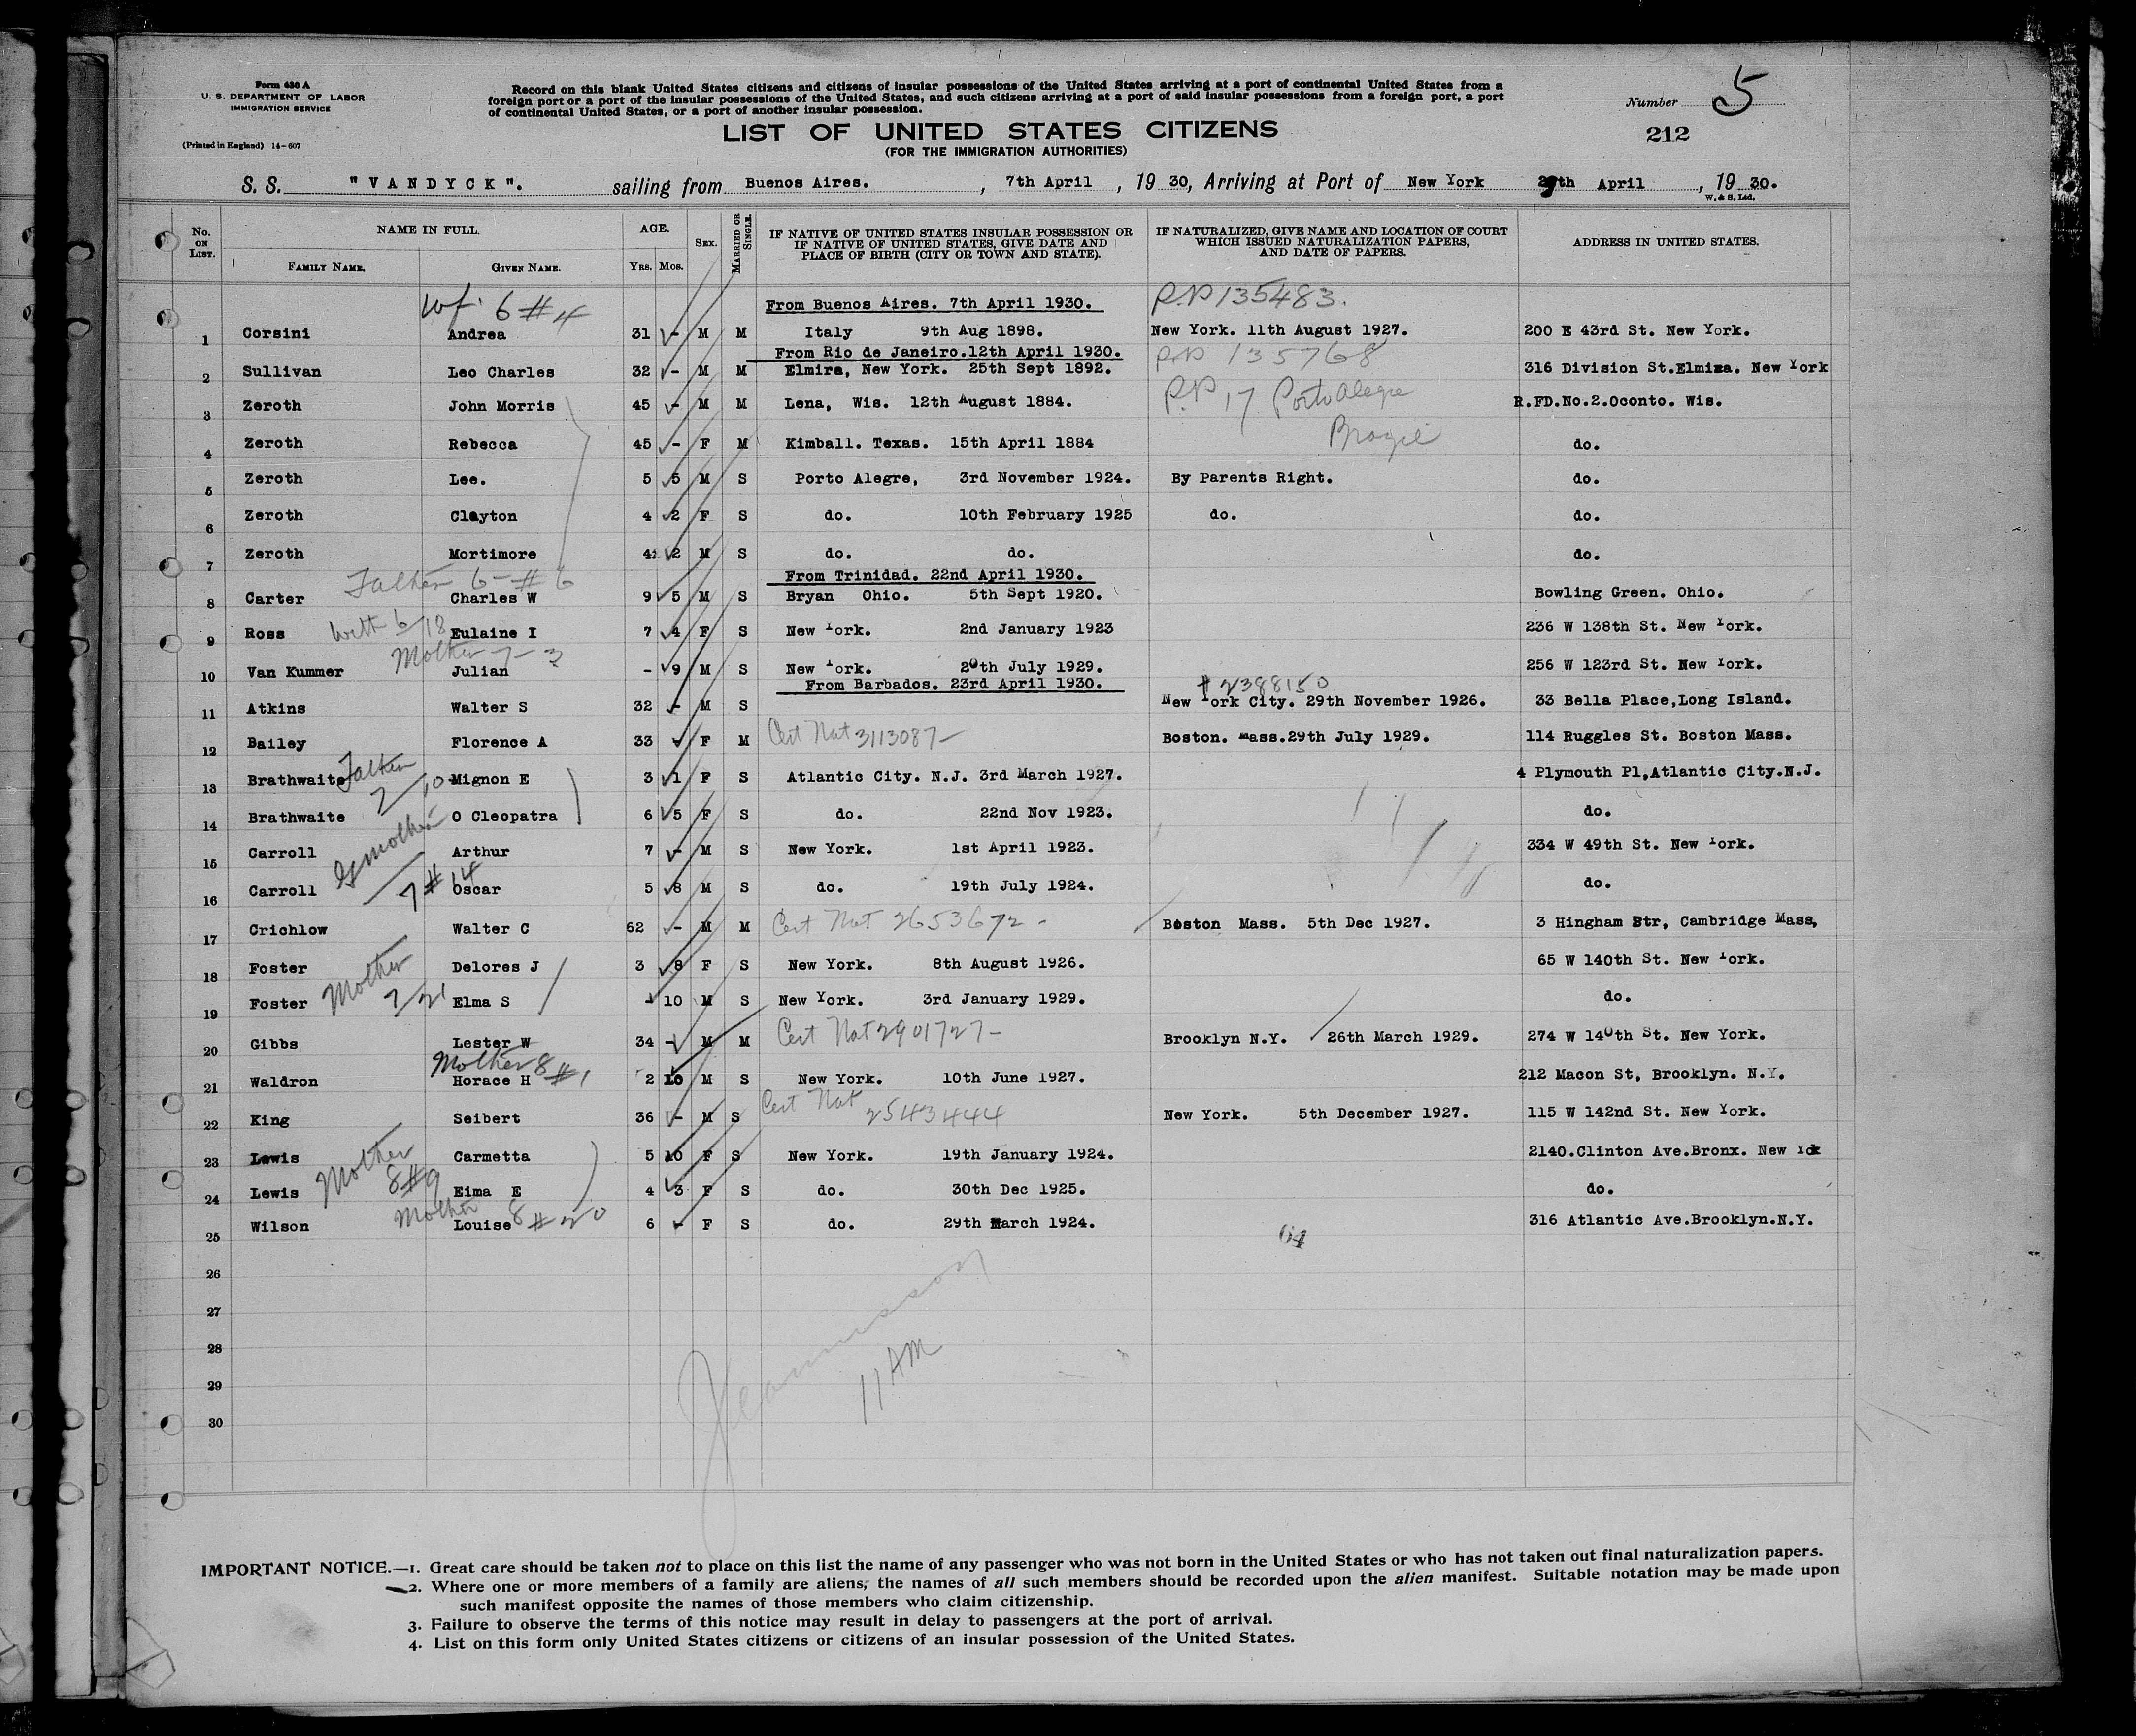 Form 630 A
U. S. DEPARTMENT OF LABOR
IMMIGRATION SERVICE
(Printed in England) 14-607
Record on this blank United States citizens and citizens of insular possessions of the United States arriving at a port of continental United States from a
foreign port or a port of the insular possessions of the United States, and such citizens arriving at a port of said insular possessions from a foreign port, a port
of continental United States, or a port of another insular possession.
Number 5
LIST OF UNITED STATES CITIZENS
212
(FOR THE IMMIGRATION AUTHORITIES)
S. S. "VANDYCK". sailing from Buenos Aires. , 7th April , 19 30, Arriving at Port of New York April , 19 30.
W. & S. Ltd.
No. ON LIST. NAME IN FULL. FAMILY NAME. GIVEN NAME. AGE. YRS. MOS. SEX. MARRIED OR SINGLE. IF NATIVE OF UNITED STATES INSULAR POSSESSION OR IF NATIVE OF UNITED STATES, GIVE DATE AND PLACE OF BIRTH (CITY OR TOWN AND STATE). IF NATURALIZED, GIVE NAME AND LOCATION OF COURT WHICH ISSUED NATURALIZATION PAPERS, AND DATE OF PAPERS. ADDRESS IN UNITED STATES.
wf. 6 # 4 From Buenos Aires. 7th April 1930. P.P 135483.
1 Corsini Andrea 31 - M M Italy 9th Aug 1898. New York. 11th August 1927. 200 E 43rd St. New York.
From Rio de Janeiro.12th April 1930. P.P 135768
2 Sullivan Leo Charles 32 - M M Elmira, New York. 25th Sept 1892. 316 Division St.Elmira. New York
3 Zeroth John Morris 45 - M M Lena, Wis. 12th August 1884. P.P 17 Porto Alegre R.FD.No.2.Oconto. Wis.
4 Zeroth Rebecca 45 - F M Kimball. Texas. 15th April 1884 Brazil do.
5 Zeroth Lee. 5 5 M S Porto Alegre, 3rd November 1924. By Parents Right. do.
6 Zeroth Clayton 4 2 F S do. 10th February 1925 do. do.
7 Zeroth Mortimore 4 2 M S do. do. do.
Father 6-# 6 From Trinidad. 22nd April 1930.
8 Carter Charles W 9 5 M S Bryan Ohio. 5th Sept 1920. Bowling Green. Ohio.
9 Ross with 6/18 Eulaine I 7 4 F S New York. 2nd January 1923 236 W 138th St. New York.
Mother 7-3
10 Van Kummer Julian - 9 M S New York. 20th July 1929. 256 W 123rd St. New York.
From Barbados. 23rd April 1930. # 2388150
11 Atkins Walter S 32 - M S New York City. 29th November 1926. 33 Bella Place,Long Island.
12 Bailey Florence A 33 F M Cert Nat 3113087- Boston. Mass.29th July 1929. 114 Ruggles St. Boston Mass.
13 Brathwaite Father 7/10 Mignon E 3 1 F S Atlantic City. N.J. 3rd March 1927. 4 Plymouth Pl,Atlantic City.N.J.
14 Brathwaite O Cleopatra 6 5 F S do. 22nd Nov 1923. do.
15 Carroll G mother 7 # 14 Arthur 7 - M S New York. 1st April 1923. 334 W 49th St. New York.
16 Carroll Oscar 5 8 M S do. 19th July 1924. do.
17 Crichlow Walter C 62 - M M Cert Nat 2653672- Boston Mass. 5th Dec 1927. 3 Hingham Str, Cambridge Mass,
18 Foster Mother 7/21 Delores J 3 8 F S New York. 8th August 1926. 65 W 140th St. New York.
19 Foster Elma S - 10 M S New York. 3rd January 1929. do.
20 Gibbs Lester W 34 - M M Cert Nat 2901727- Brooklyn N.Y. 26th March 1929. 274 W 140th St. New York.
Mother 8 # 1
21 Waldron Horace H 2 10 M S New York. 10th June 1927. 212 Macon St, Brooklyn. N.Y.
22 King Seibert 36 - M S Cert Nat 2543444 New York. 5th December 1927. 115 W 142nd St. New York.
23 Lewis Mother 8#9 Carmetta 5 10 F S New York. 19th January 1924. 2140.Clinton Ave.Bronx. New York
24 Lewis Eima E 4 3 F S do. 30th Dec 1925. do.
Mother 8 # 20
25 Wilson Louise 6 - F S do. 29th March 1924. 316 Atlantic Ave.Brooklyn.N.Y.
64
26
27
28
11 AM
29
30
IMPORTANT NOTICE.—1. Great care should be taken not to place on this list the name of any passenger who was not born in the United States or who has not taken out final naturalization papers.
2. Where one or more members of a family are aliens, the names of all such members should be recorded upon the alien manifest. Suitable notation may be made upon
such manifest opposite the names of those members who claim citizenship.
3. Failure to observe the terms of this notice may result in delay to passengers at the port of arrival.
4. List on this form only United States citizens or citizens of an insular possession of the United States.